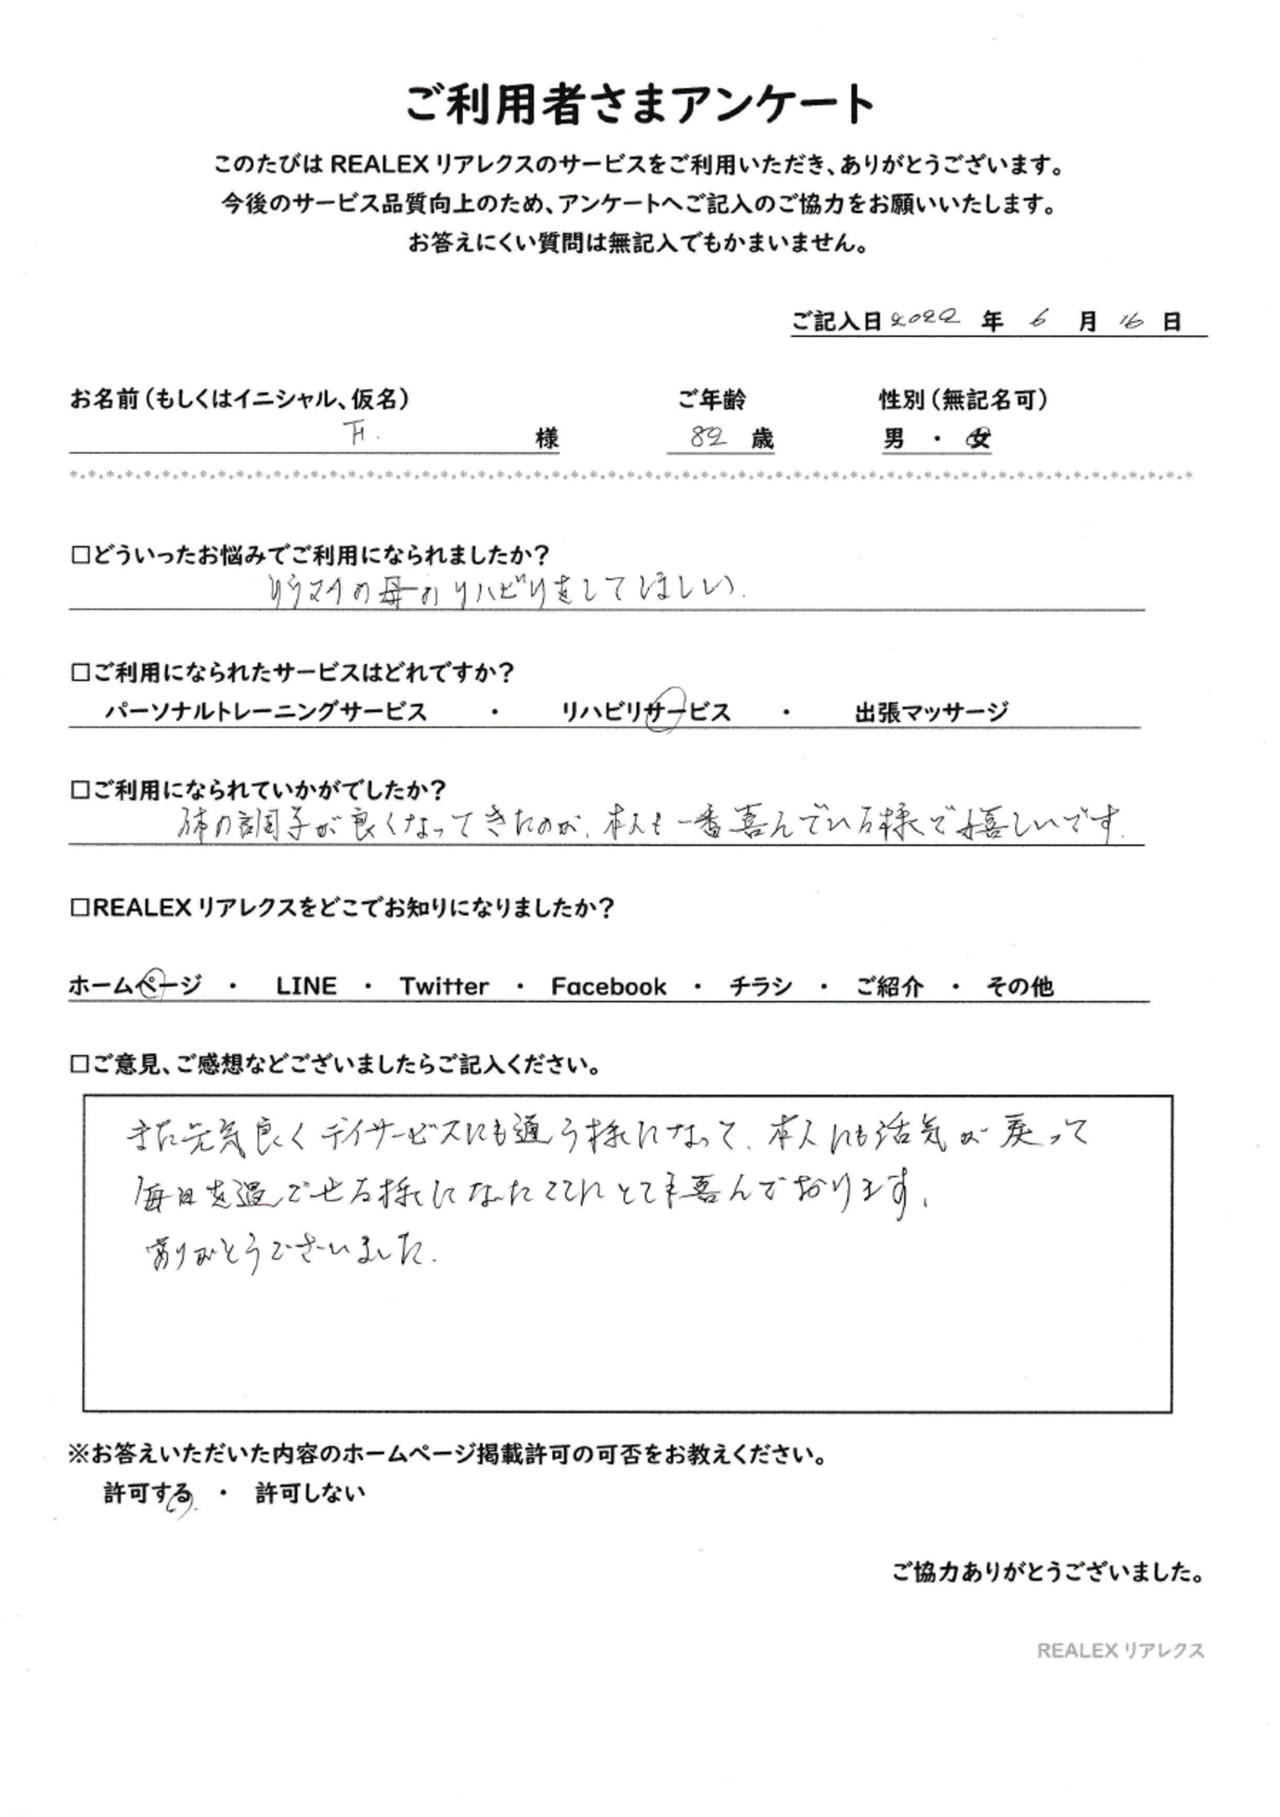 ご利用者さまアンケート
このたびは REALEX リアレクスのサービスをご利用いただき、ありがとうございます。
今後のサービス品質向上のため、アンケートへご記入のご協力をお願いいたします。
お答えにくい質問は無記入でもかまいません。
ご記入日 2022 年 6 月 16 日
お名前（もしくはイニシャル、仮名） ご年齢 性別（無記名可）
様 82 歳 男 ・ 女
□どういったお悩みでご利用になられましたか？
リウマチの母のリハビリをしてほしい.
□ご利用になられたサービスはどれですか？
パーソナルトレーニングサービス ・ リハビリサービス ・ 出張マッサージ
□ご利用になられていかがでしたか？
体の調子が良くなってきたのが、本人も一番喜んでいる様で嬉しいです.
□REALEX リアレクスをどこでお知りになりましたか？
ホームページ ・ LINE ・ Twitter ・ Facebook ・ チラシ ・ ご紹介 ・ その他
□ご意見、ご感想などございましたらご記入ください。
また元気良くデイサービスにも通う様になって、本人にも活気が戻って
毎日を過ごせる様になたことにとても喜んでおります.
ありがとうございました.
※お答えいただいた内容のホームページ掲載許可の可否をお教えください。
許可する ・ 許可しない
ご協力ありがとうございました。
REALEX リアレクス